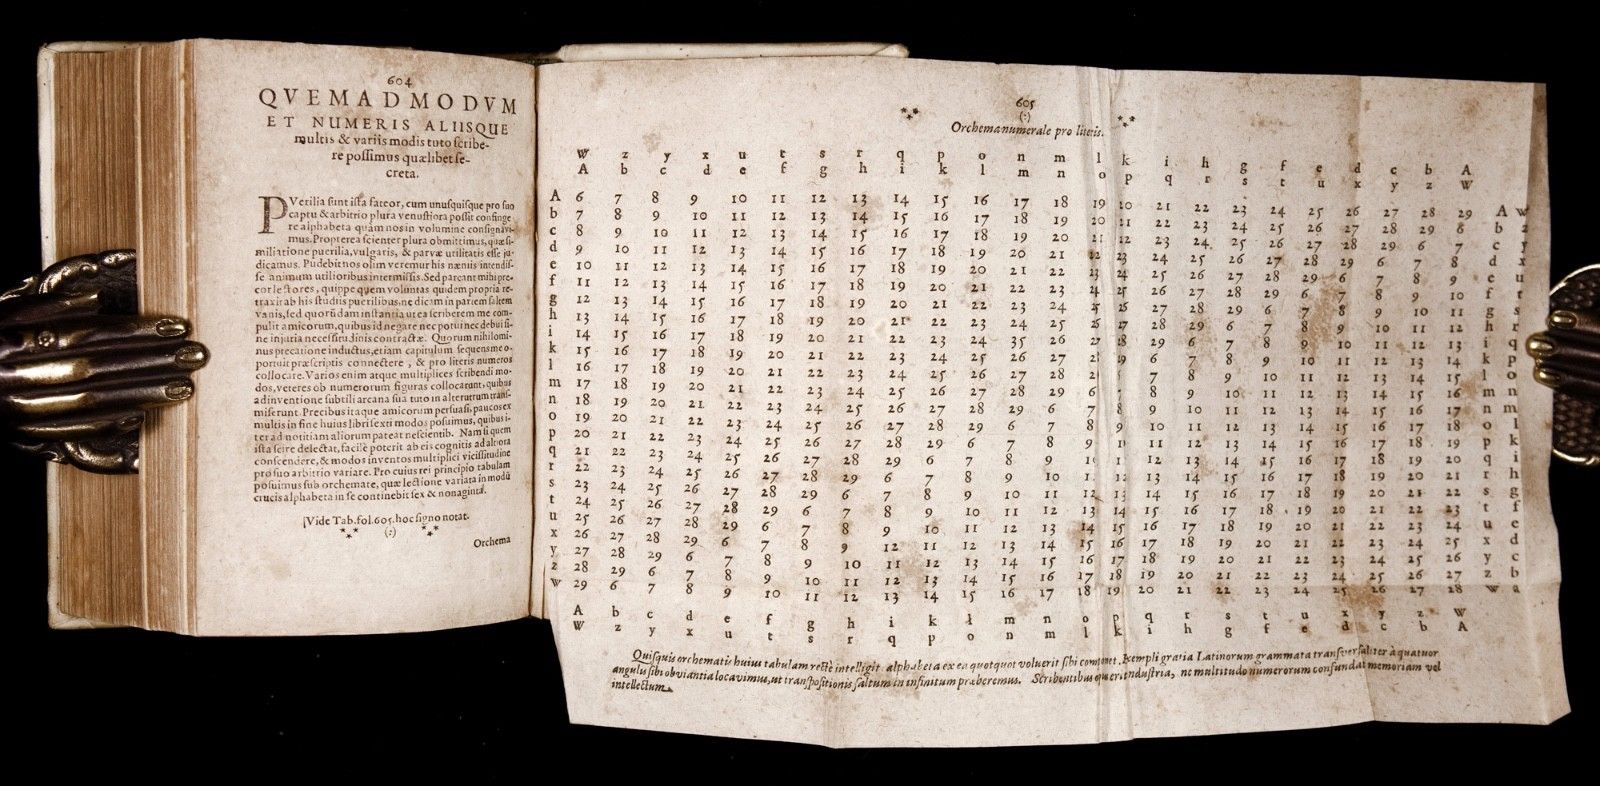 604
QVEMADMODVM
ET NUMERIS ALIISQUE
multis & variis modis tuto scribe-
re possimus quælibet se-
creta.
PVerilia sunt ista fateor, cum unusquisque pro suo
captu & arbitrio plura venustiora possit confinge-
re alphabeta quàm nos in volumine consignavi-
mus. Propterea scienter plura obmittimus, quæ si-
militatione puerilia, vulgaris, & parvæ utilitatis esse ju-
dicamus. Pudebit nos olim veremur his næniis intendis-
se animum utilioribus intermissis. Sed parcent mihi pre-
cor lectores, quippe quem voluntas quidem propria re-
traxit ab his studiis puerilibus, ne dicam in parrem saltem
vanis, sed quorũdam instantia ut ea scriberem me com-
pulit amicorum, quibus id negare nec potui nec debui si-
ne injuria necessitudinis contractæ. Quorum nihilomi-
nus precatione inductus, etiam capitulum sequens me o-
portuit præscriptis connectere, & pro literis numeros
collocare. Varios enim atque multiplices scribendi mo-
dos, veteres ob numerorum figuras collocarunt, quibus
adinventione subtili arcana sua tuto in alterutrum trans-
miserunt. Precibus itaque amicorum persuasi, paucos ex
multis in fine huius libri sexti modos posuimus, quibus i-
ter ad notitiam aliorum pateat nescientib. Nam si quem
ista scire delectat, facilè poterit ab eis cognitis ad altiora
conscendere, & modos inventos multiplici vicissitudine
pro suo arbitrio variare. Pro cuius rei principio tabulam
posuimus sub orchemate, quæ lectione variata in modũ
crucis alphabeta in se continebit sex & nonagintâ.
Vide Tab. fol. 605. hoc signo notat.
(:)
Orchema
605
(:)
Orchema numerale pro literis.
w z y x u t s r q p o n m l k i h g f e d c b A
A b c d e f g h i k l m n o p q r s t u x y z w
A 6 7 8 9 10 11 12 13 14 15 16 17 18 19 20 21 22 23 24 25 26 27 28 29 A w
b 7 8 9 10 11 12 13 14 15 16 17 18 19 20 21 22 23 24 25 26 27 28 29 6 b z
c 8 9 10 11 12 13 14 15 16 17 18 19 20 21 22 23 24 25 26 27 28 29 6 7 c y
d 9 10 11 12 13 14 15 16 17 18 19 20 21 22 23 24 25 26 27 28 29 6 7 8 d x
e 10 11 12 13 14 15 16 17 18 19 20 21 22 23 24 25 26 27 28 29 6 7 8 9 e u
f 11 12 13 14 15 16 17 18 19 20 21 22 23 24 25 26 27 28 29 6 7 8 9 10 f t
g 12 13 14 15 16 17 18 19 20 21 22 23 24 25 26 27 28 29 6 7 8 9 10 11 g s
h 13 14 15 16 17 18 19 20 21 22 23 24 25 26 27 28 29 6 7 8 9 10 11 12 h r
i 14 15 16 17 18 19 20 21 22 23 24 35 26 27 28 29 6 7 8 9 10 11 12 13 i q
k 15 16 17 18 19 20 21 22 23 24 25 26 27 28 29 6 7 8 9 10 11 12 13 14 k p
l 16 17 18 19 20 21 22 23 24 25 26 27 28 7 8 9 10 11 12 13 14 15 l o
m 17 18 19 20 21 22 23 24 25 26 27 28 29 6 7 8 9 10 11 12 13 14 15 16 m n
n 18 19 20 21 22 23 24 25 26 27 28 29 6 7 8 9 10 11 12 13 14 15 16 17 n m
o 19 20 21 22 23 24 25 26 27 28 29 6 7 8 9 10 11 12 13 14 15 16 17 18 o l
p 20 21 22 23 24 25 26 27 28 29 6 7 8 9 10 11 12 13 14 15 16 17 18 19 p k
q 21 22 23 24 25 26 27 28 29 6 7 8 9 12 13 14 15 16 17 18 19 20 q i
r 22 23 24 25 26 27 28 29 6 7 8 9 10 11 12 13 14 15 16 17 18 19 20 21 r h
s 23 24 25 26 27 28 29 6 7 8 9 10 11 12 13 14 15 16 17 18 19 20 21 22 s g
t 24 25 26 27 28 29 6 7 8 9 10 11 12 13 14 15 16 17 18 19 20 21 22 23 t f
u 25 26 27 28 29 6 7 8 9 10 11 12 13 14 15 16 17 18 19 20 21 22 23 24 u e
x 26 27 28 29 6 7 8 9 12 11 12 13 14 15 16 17 18 19 20 21 22 23 24 25 x d
y 27 28 29 6 7 8 9 10 11 12 13 14 15 16 17 18 19 20 21 22 23 24 25 26 y c
z 28 29 6 7 8 9 10 11 12 13 14 15 16 17 18 19 20 21 22 23 24 25 26 27 z b
w 29 6 7 8 9 10 11 12 13 14 15 16 17 18 19 20 21 22 23 24 25 26 27 28 w a
A b c d e f g h i k l m n o p q r s t u x y z w
w z y x u t s r q p o n m l k i h g f e d c b A
Quisquis orchematis huius tabulam rectè intelligit alphabeta ex ea quotquot voluerit sibi componet. Exempli gratia Latinorum grammata transversaliter à quatuor
angulis sibi obviantia locavimus, ut transpositionis saltum in infinitum præberemus. Scribentibus queri industria, ne multitudo numerorum confundat memoriam vel
intellectum.